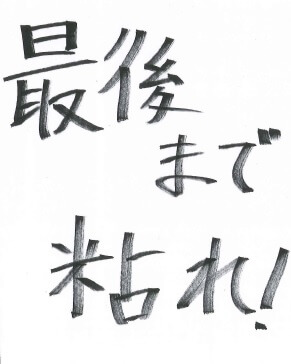 最後
まで
粘れ!